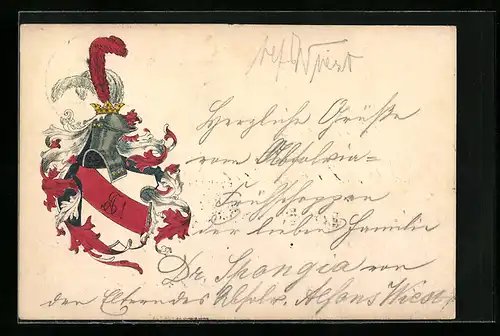 Herzliche Grüße
vom Absolvia=
Frühschoppen
der lieben Familie
Dr. Spongia von
den Eltern des Absolv. Alfons Wiest